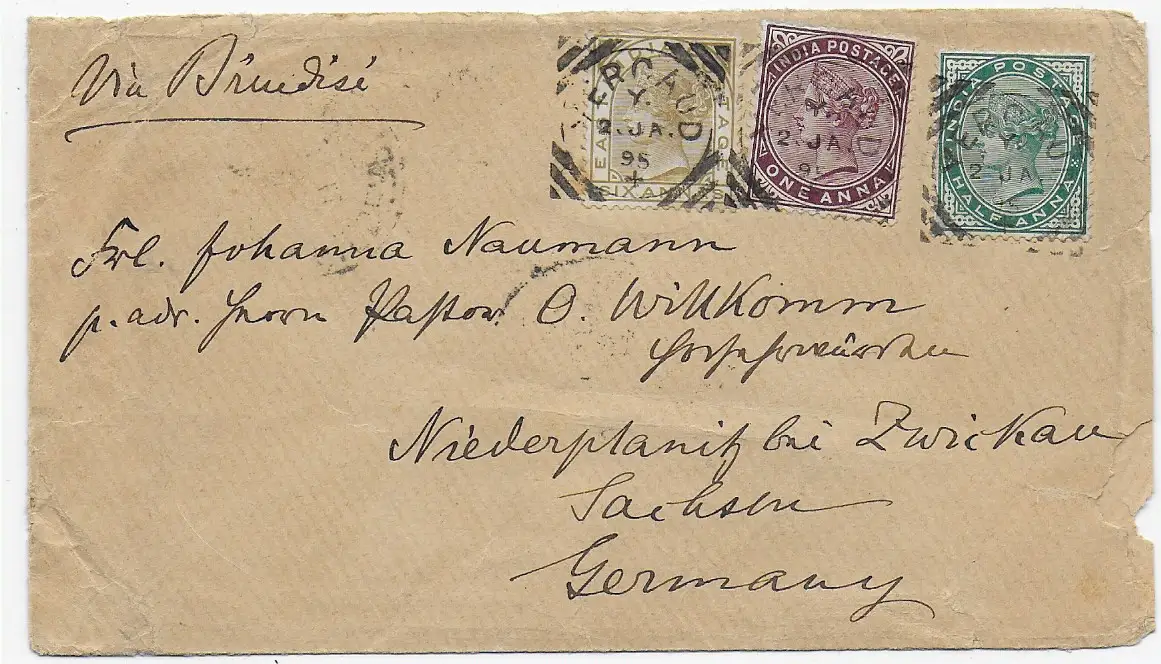 Via Brindisi
EAST INDIA POSTAGE
SIX ANNAS
ERCAUD
Y.
2. JA.
95
INDIA POSTAGE
ONE ANNA
2. JA.
INDIA POSTAGE
HALF ANNA
2 JA
Frl. Johanna Naumann
p. adr. Herrn Pastor O. Willkomm
Hochehrwürden
Niederplanitz bei Zwickau
Sachsen
Germany